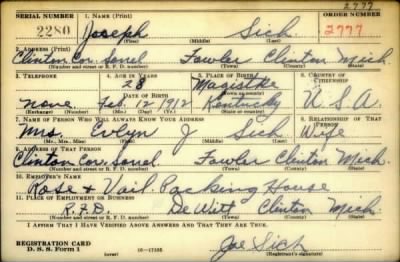 2777
SERIAL NUMBER 1. NAME (Print) ORDER NUMBER
2280 Joseph Sich 2777
(First) (Middle) (Last)
2. ADDRESS (Print)
Clinton Cor. sonel Fowler Clinton Mich.
(Number and street or R. F. D. number) (Town) (County) (State)
3. TELEPHONE 4. AGE IN YEARS 5. PLACE OF BIRTH 6. COUNTRY OF CITIZENSHIP
28
DATE OF BIRTH
none Feb. 12 1912 Kentucky U.S.A.
(Exchange) (Number) (Mo.) (Day) (Yr.) (State or country)
7. NAME OF PERSON WHO WILL ALWAYS KNOW YOUR ADDRESS 8. RELATIONSHIP OF THAT PERSON
Mrs. Evlyn J Sich Wife
(Mr., Mrs., Miss) (First) (Middle) (Last)
9. ADDRESS OF THAT PERSON
Clinton Cor. sonel Fowler Clinton Mich.
(Number and street or R. F. D. number) (Town) (County) (State)
10. EMPLOYER'S NAME
Rose & Vail Packing House
11. PLACE OF EMPLOYMENT OR BUSINESS
R.F.D. DeWitt Clinton Mich.
(Number and street or R. F. D. number) (Town) (County) (State)
I AFFIRM THAT I HAVE VERIFIED ABOVE ANSWERS AND THAT THEY ARE TRUE.
REGISTRATION CARD
D. S. S. Form 1 (over) 16—17105 Joe Sich
(Registrant's signature)